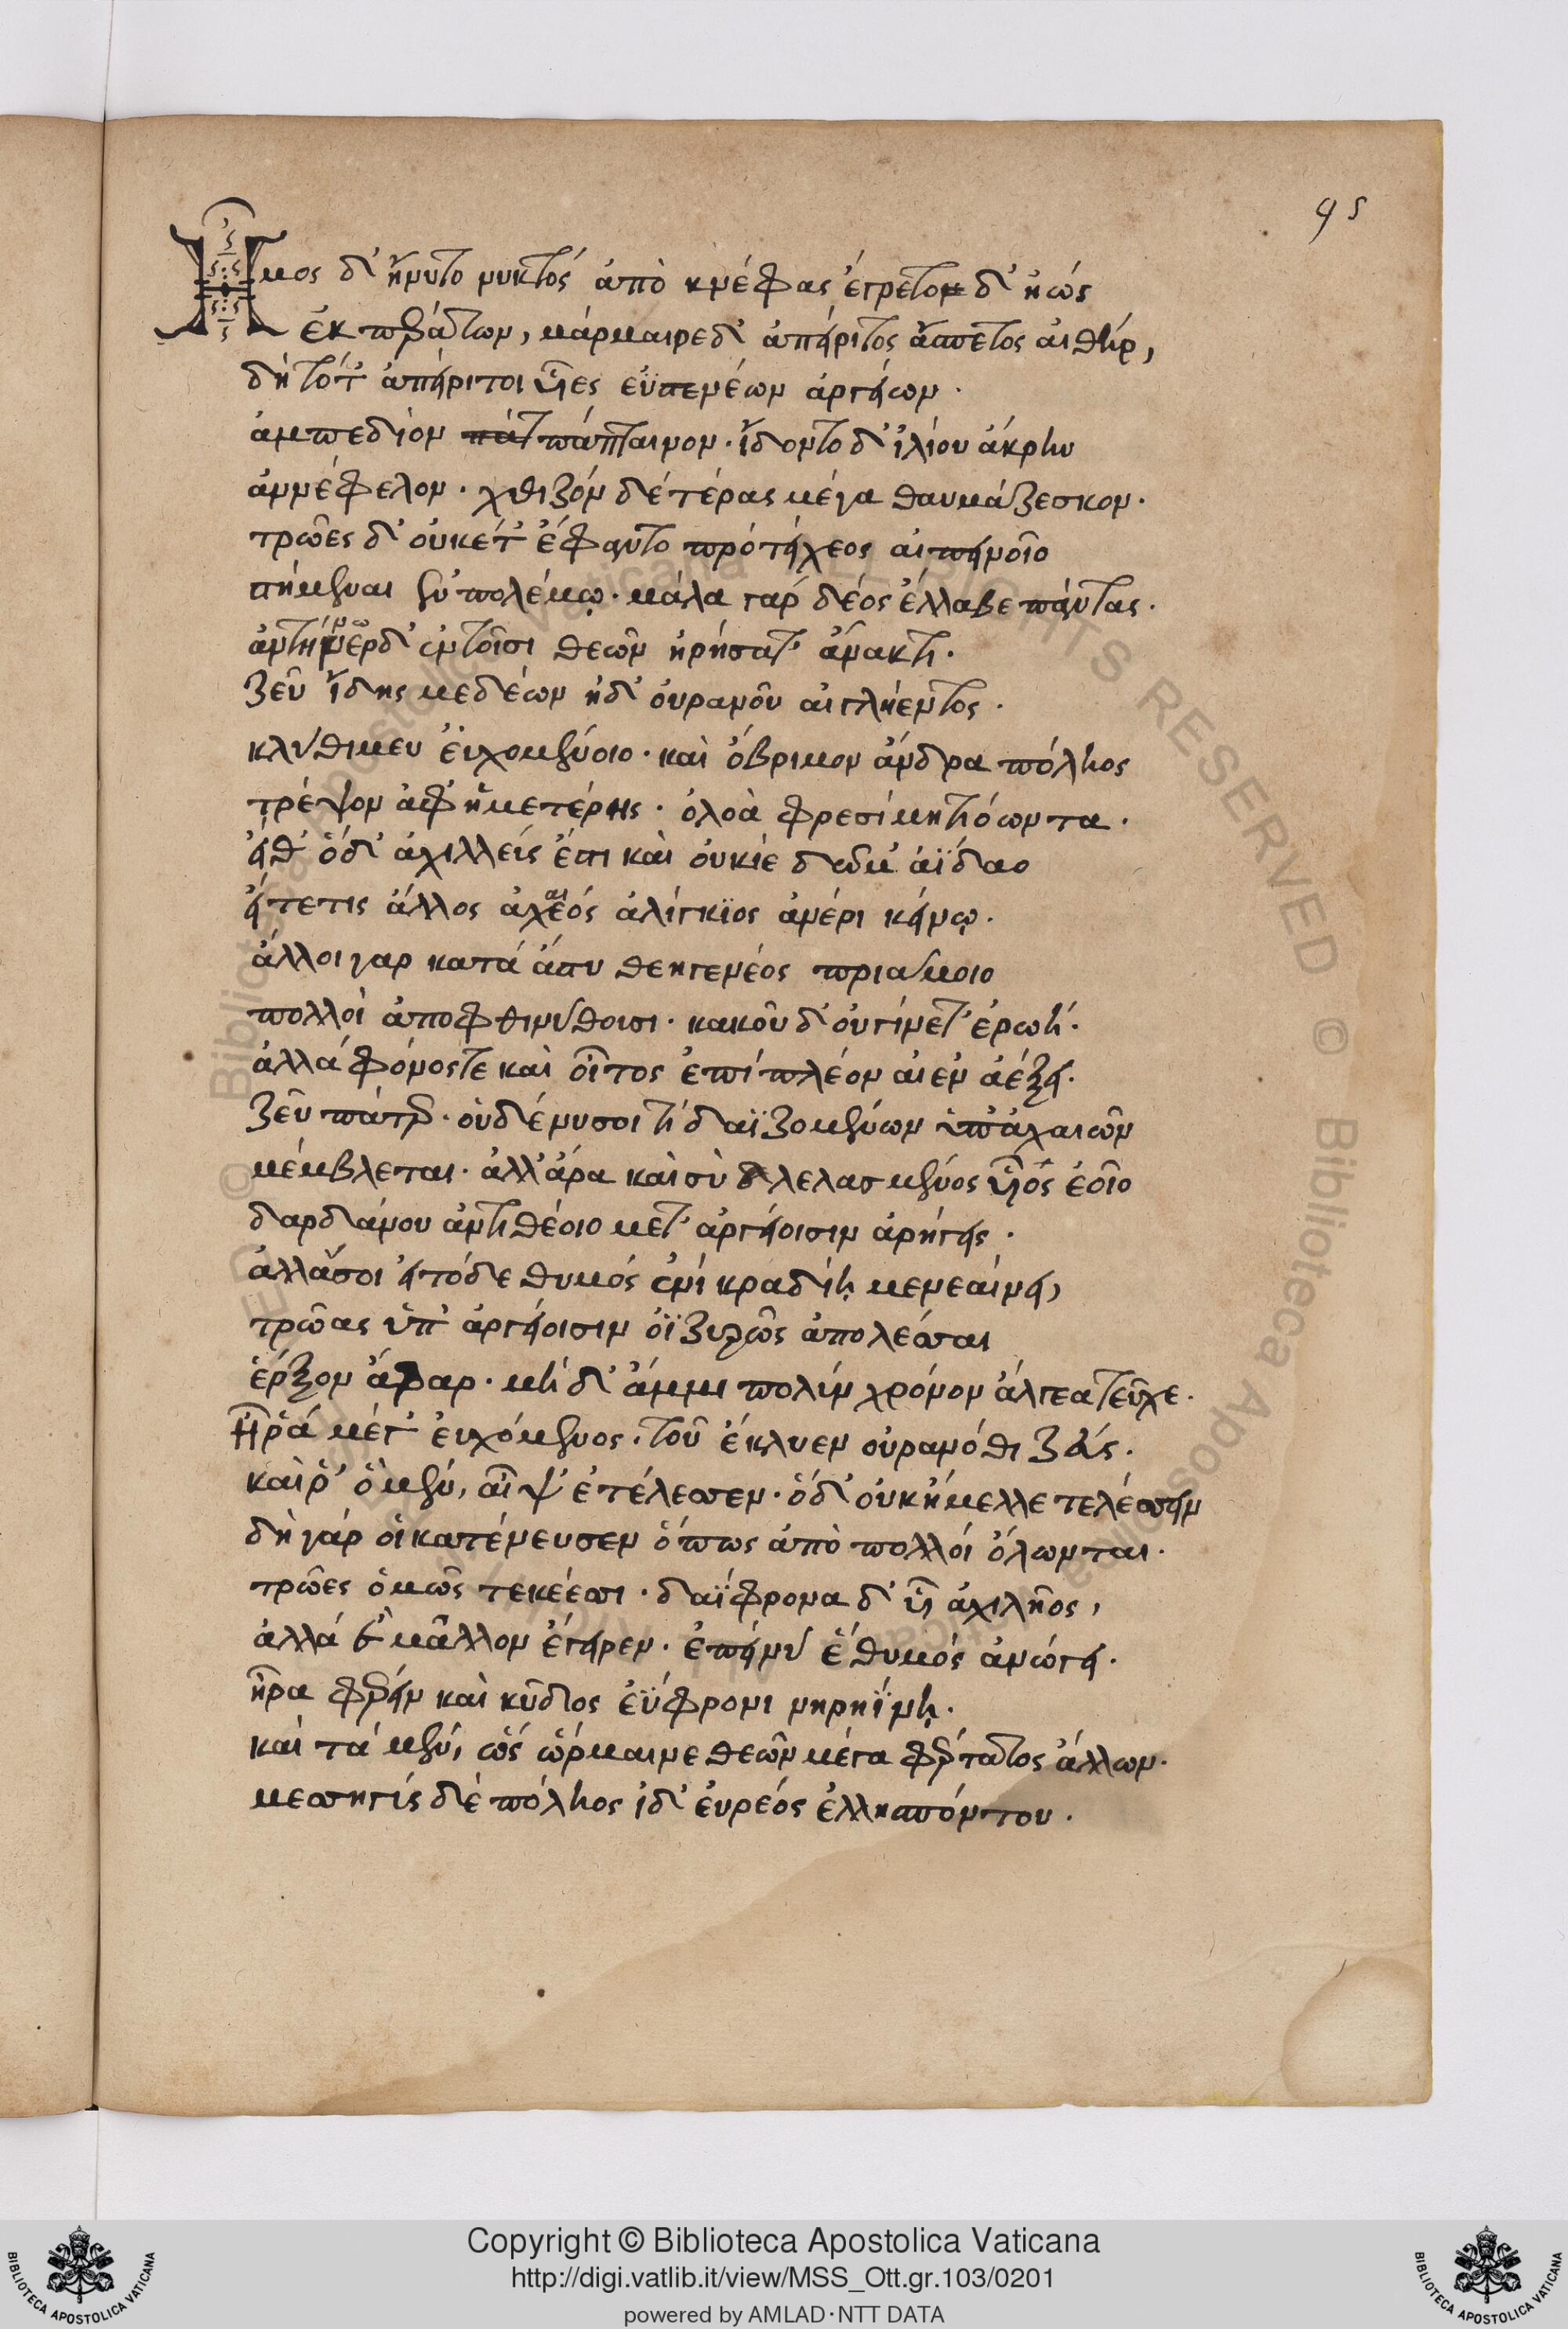 95
Ἦμος δ' ἤνυτο νυκτός ἀπὸ κνέφας ἔγρετο δ' ἠώς
ἐκ περάτων, μάρμαιρε δ' ἀπείριτος ἄσπετος αἰθήρ,
δὴ τότ' ἀπείριτοι υἷες ἐϋσθενέων ἀργείων.
ἀμπεδίον πάπταινον. ἴδοντο δ' ἰλίου ἄκρην
ἀννέφελον. χθιζόν δέ τέρας μέγα θαυμάζεσκον.
τρῶες δ' οὐκέτ' ἔφαντο πρό τείχεος αἰπεινοῖο
στήμεναι ἐν πολέμῳ. μάλα γάρ δέος ἔλλαβε πάντας.
ἀντήνωρ δ' ἐν τοῖσι θεῶν ἠρήσατ' ἄνακτι.
ζεῦ ἴδης μεδέων ἠδ' οὐρανοῦ αἰγλήεντος.
κλῦθι μευ εὐχομένοιο. καὶ ὄβριμον ἄνδρα πόληος
τρέψον ἀφ' ἡμετέρης. ὀλοὰ φρεσὶ μητιόωντα.
εἴθ' ὅδ' ἀχιλλεύς ἐστι καὶ οὐ κίε δῶμ' ἀΐδαο
εἴτε τις ἄλλος ἀχαιός ἀλίγκιος ἀνέρι κείνῳ.
ἄλλοι γαρ κατά ἄστυ θεηγενέος πριάμοιο
πολλοὶ ἀποφθινύθουσι. κακοῦ δ' οὐ γίνετ' ἐρωή.
ἀλλά φόνος τε καὶ οἶτος ἐπί πλέον αἰεν ἀέξει.
ζεῦ πάτερ. οὐδέ νυ σοι τί δαϊζομένων ὑπ' ἀχαιῶν
μέμβλεται. ἀλλ' ἄρα καὶ σὺ λελασμένος υἷος ἑοῖο
δαρδάνου ἀντιθέοιο μετ' ἀργείοισιν ἀρήγεις.
ἀλλά σοι εἰ τόδε θυμός ἐνί κραδίῃ μενεαίνει,
τρῶας ὑπ' ἀργείοισιν ὀϊζυρῶς ἀπολέσσαι
ἔρξον ἄφαρ. μή δ' ἄμμι πολύν χρόνον ἄλγεα τεῦχε.
Ἦ ῥά μέγ' εὐχόμενος. τοῦ ἔκλυεν οὐρανόθι ζεύς.
καὶ ῥ' ὃ μέν, αἶψ' ἐτέλεσσεν. ὅδ' οὐκ ἤμελλε τελέσσειν
δὴ γάρ οἱ κατένευσεν ὅπως ἀπὸ πολλοί ὄλωνται.
τρῶες ὁμῶς τεκέεσσι. δαΐφρονα δ' υἷ ἀχιλῆος,
ἀλλά μᾶλλον ἔγειρεν. ἐπεί νύ ἑ θυμός ἀνώγει.
ἦρα φέρειν καὶ κῦδος ἐΰφρονι νηρηΐνῃ.
καὶ τά μέν, ὥς ὥρμαινε θεῶν μέγα φέρτατος ἄλλων.
μεσσηγύς δὲ πόληος ἰδ' εὐρέος ἑλλησπόντου.
© Biblioteca Apostolica Vaticana ALL RIGHTS RESERVED © Biblioteca Apostolica Vaticana ALL RIGHTS RESERVED
Copyright © Biblioteca Apostolica Vaticana
http://digi.vatlib.it/view/MSS_Ott.gr.103/0201
powered by AMLAD·NTT DATA
BIBLIOTECA APOSTOLICA VATICANA
BIBLIOTECA APOSTOLICA VATICANA